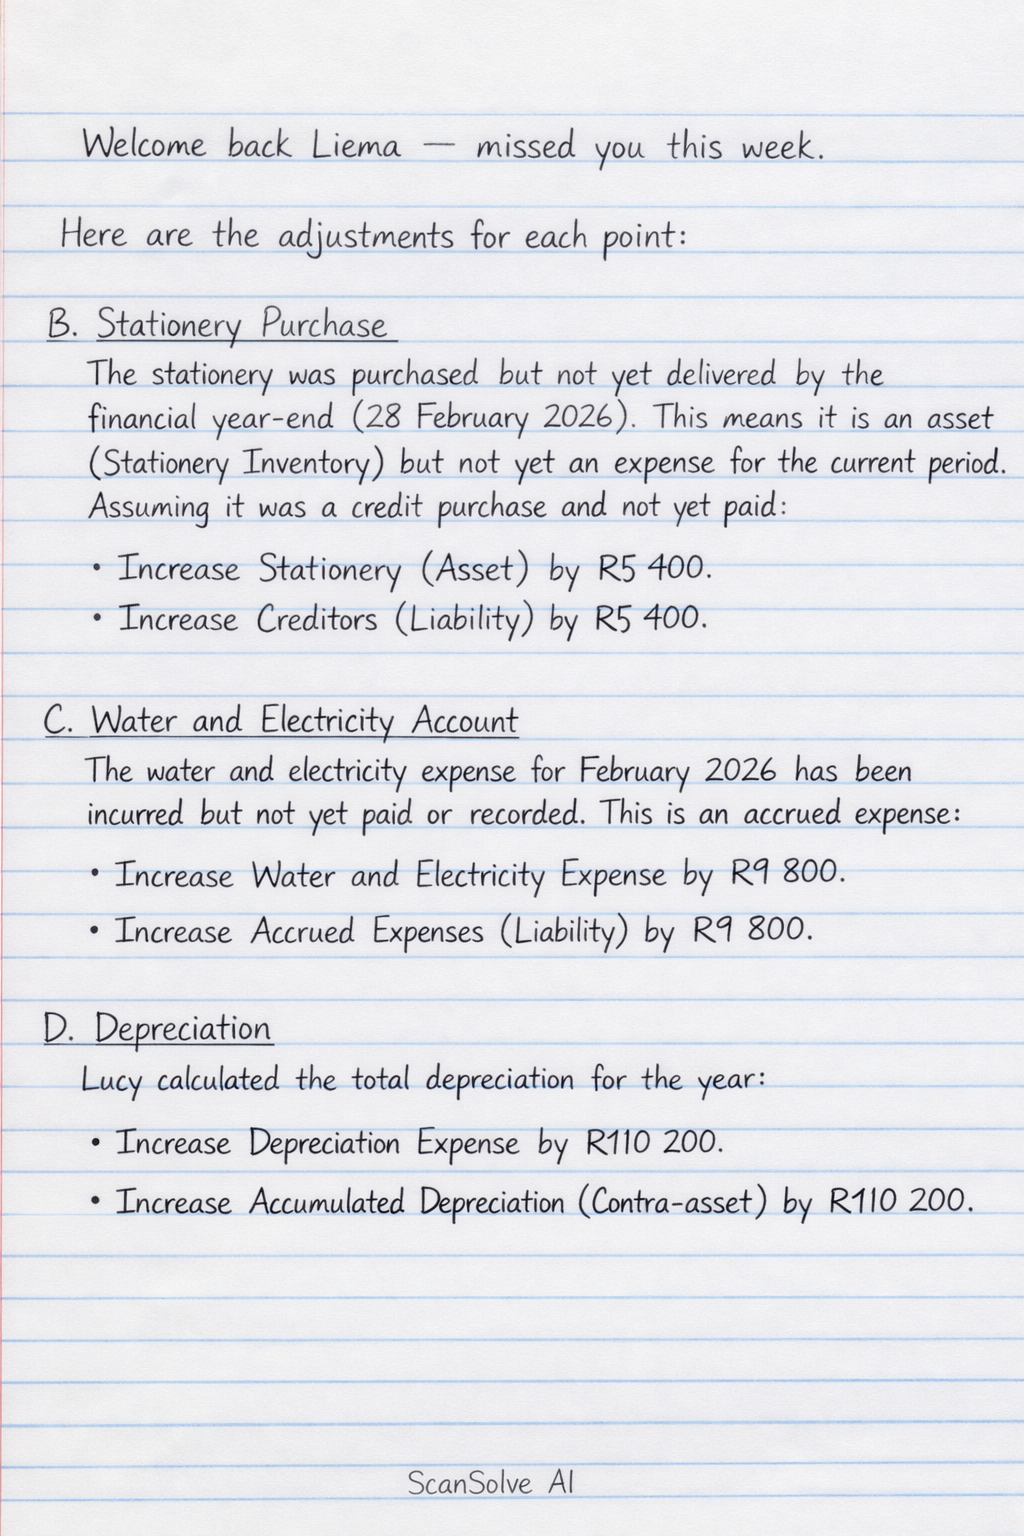 Welcome back Liema — missed you this week.
Here are the adjustments for each point:
B. Stationery Purchase
The stationery was purchased but not yet delivered by the
financial year-end (28 February 2026). This means it is an asset
(Stationery Inventory) but not yet an expense for the current period.
Assuming it was a credit purchase and not yet paid:
• Increase Stationery (Asset) by R5 400.
• Increase Creditors (Liability) by R5 400.
C. Water and Electricity Account
The water and electricity expense for February 2026 has been
incurred but not yet paid or recorded. This is an accrued expense:
• Increase Water and Electricity Expense by R9 800.
• Increase Accrued Expenses (Liability) by R9 800.
D. Depreciation
Lucy calculated the total depreciation for the year:
• Increase Depreciation Expense by R110 200.
• Increase Accumulated Depreciation (Contra-asset) by R110 200.
ScanSolve AI